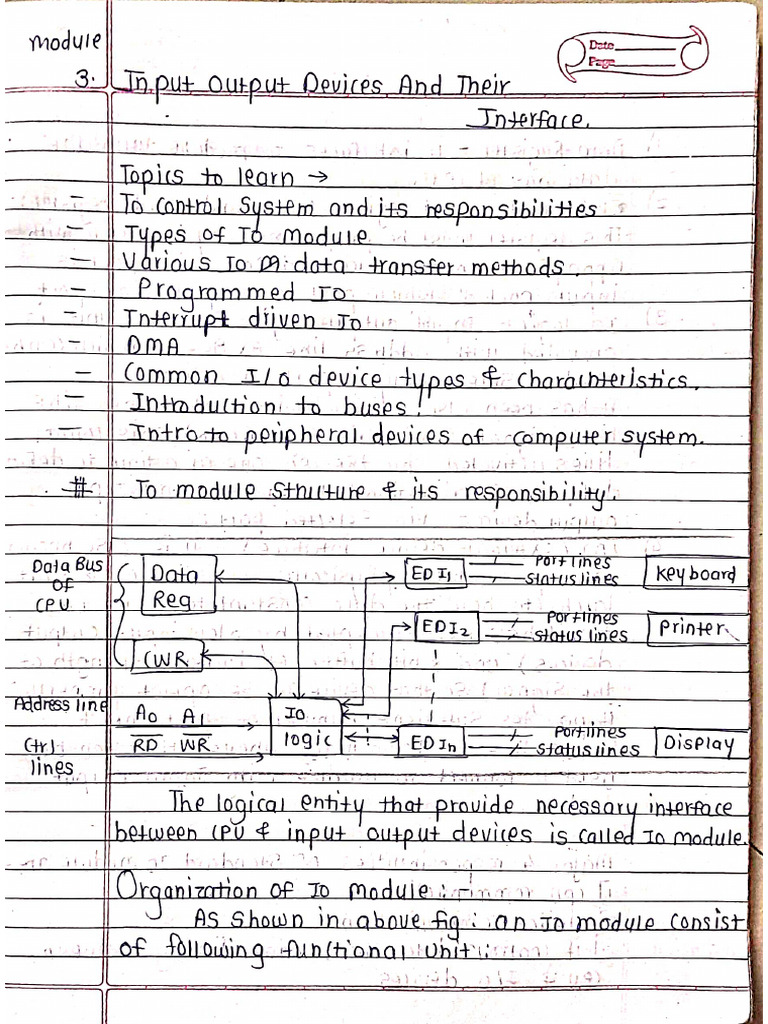 module
3. Input Output Devices And Their
Interface.
Date
Page
Topics to learn →
- To control System and its responsibilities
- Types of IO Module
- Various IO data transfer methods.
- Programmed IO
- Interrupt driven IO
- DMA
- Common I/O device types & charachteristics.
- Introduction to buses.
- Intro to peripheral devices of computer system.
# Io module structure & its responsibility.
Data Bus
of
CPU
Data
Reg
CWR
Address line
Ctrl
lines
A0 A1
R̅D̅ W̅R̅
IO
logic
EDI1
Port lines
Status lines
Keyboard
EDI2
Port lines
Status lines
Printer
EDIn
Port lines
Status lines
Display
The logical entity that provide necessary interface
between CPU & input output devices is called Io module.
Organization of Io module :-
As shown in above fig. an Io module consist
of following functional unit: